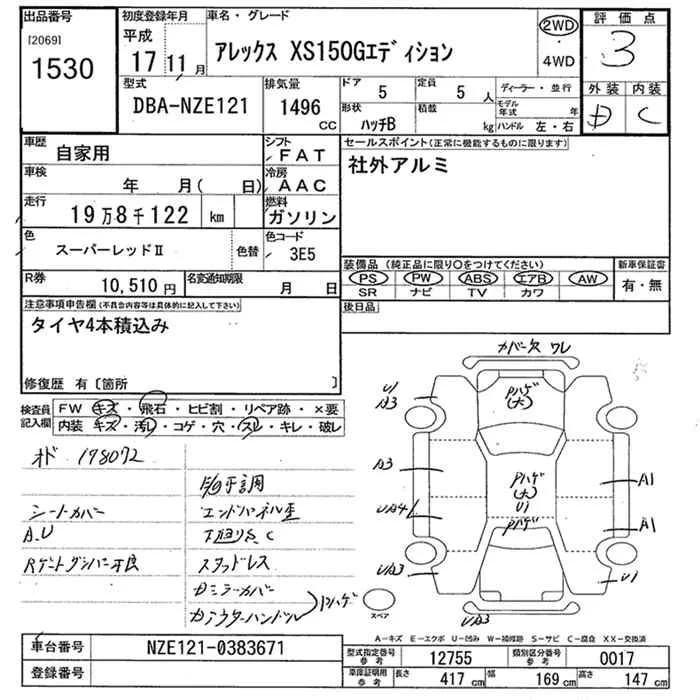 出品番号
[2069]
1530
初度登録年月
平成
17 11 月
車名・グレード
アレックス XS150Gエディション
2WD
・
4WD
評価点
3
外装 内装
D C
型式
DBA-NZE121
排気量
1496
CC
ドア
5
定員
5 人
形状
ハッチB
積載
kg
ディーラー・並行
モデル年式 年
ハンドル 左・右
車歴
自家用
シフト
FAT
車検
年 月( 日)
冷房
AAC
走行
19万8千122 km
燃料
ガソリン
色
スーパーレッドⅡ
色替
色コード
3E5
R券
10,510円
名変通知期限
月 日
セールスポイント(正常に機能するものに限ります)
社外アルミ
装備品(純正品に限り〇をつけてください)
PS PW ABS エアB AW
SR ナビ TV カワ
新車保証書
有・無
後日品
注意事項申告欄(不具合内容等は具体的に記入して下さい)
タイヤ4本積込み
修復歴 有〔箇所 〕
検査員記入欄
FW キズ・飛石・ヒビ割・リペア跡・×要
内装・キズ・汚レ・コゲ・穴・スレ・キレ・破レ
オド 198072
シートカバー
A.U
Rゲートダンパー不良
エンドパネル歪
下廻りS C
スタッドレス
Dミラーカバー
Dアウターハンドル
Pハゲ
カバー欠 ワレ
Pハゲ
(大)
U1
A3
A3
UA4
UA3
Pハゲ
(大)
U1
Pハゲ
A1
A1
U1
UA3
スペア
A-キズ E-エクボ U-凹み W-補修跡 S-サビ C-腐食 XX-交換済
車台番号
NZE121-0383671
登録番号
型式指定番号
参考
12755
類別区分番号
参考
0017
車庫証明用
参考
長さ
417 cm
幅
169 cm
高さ
147 cm